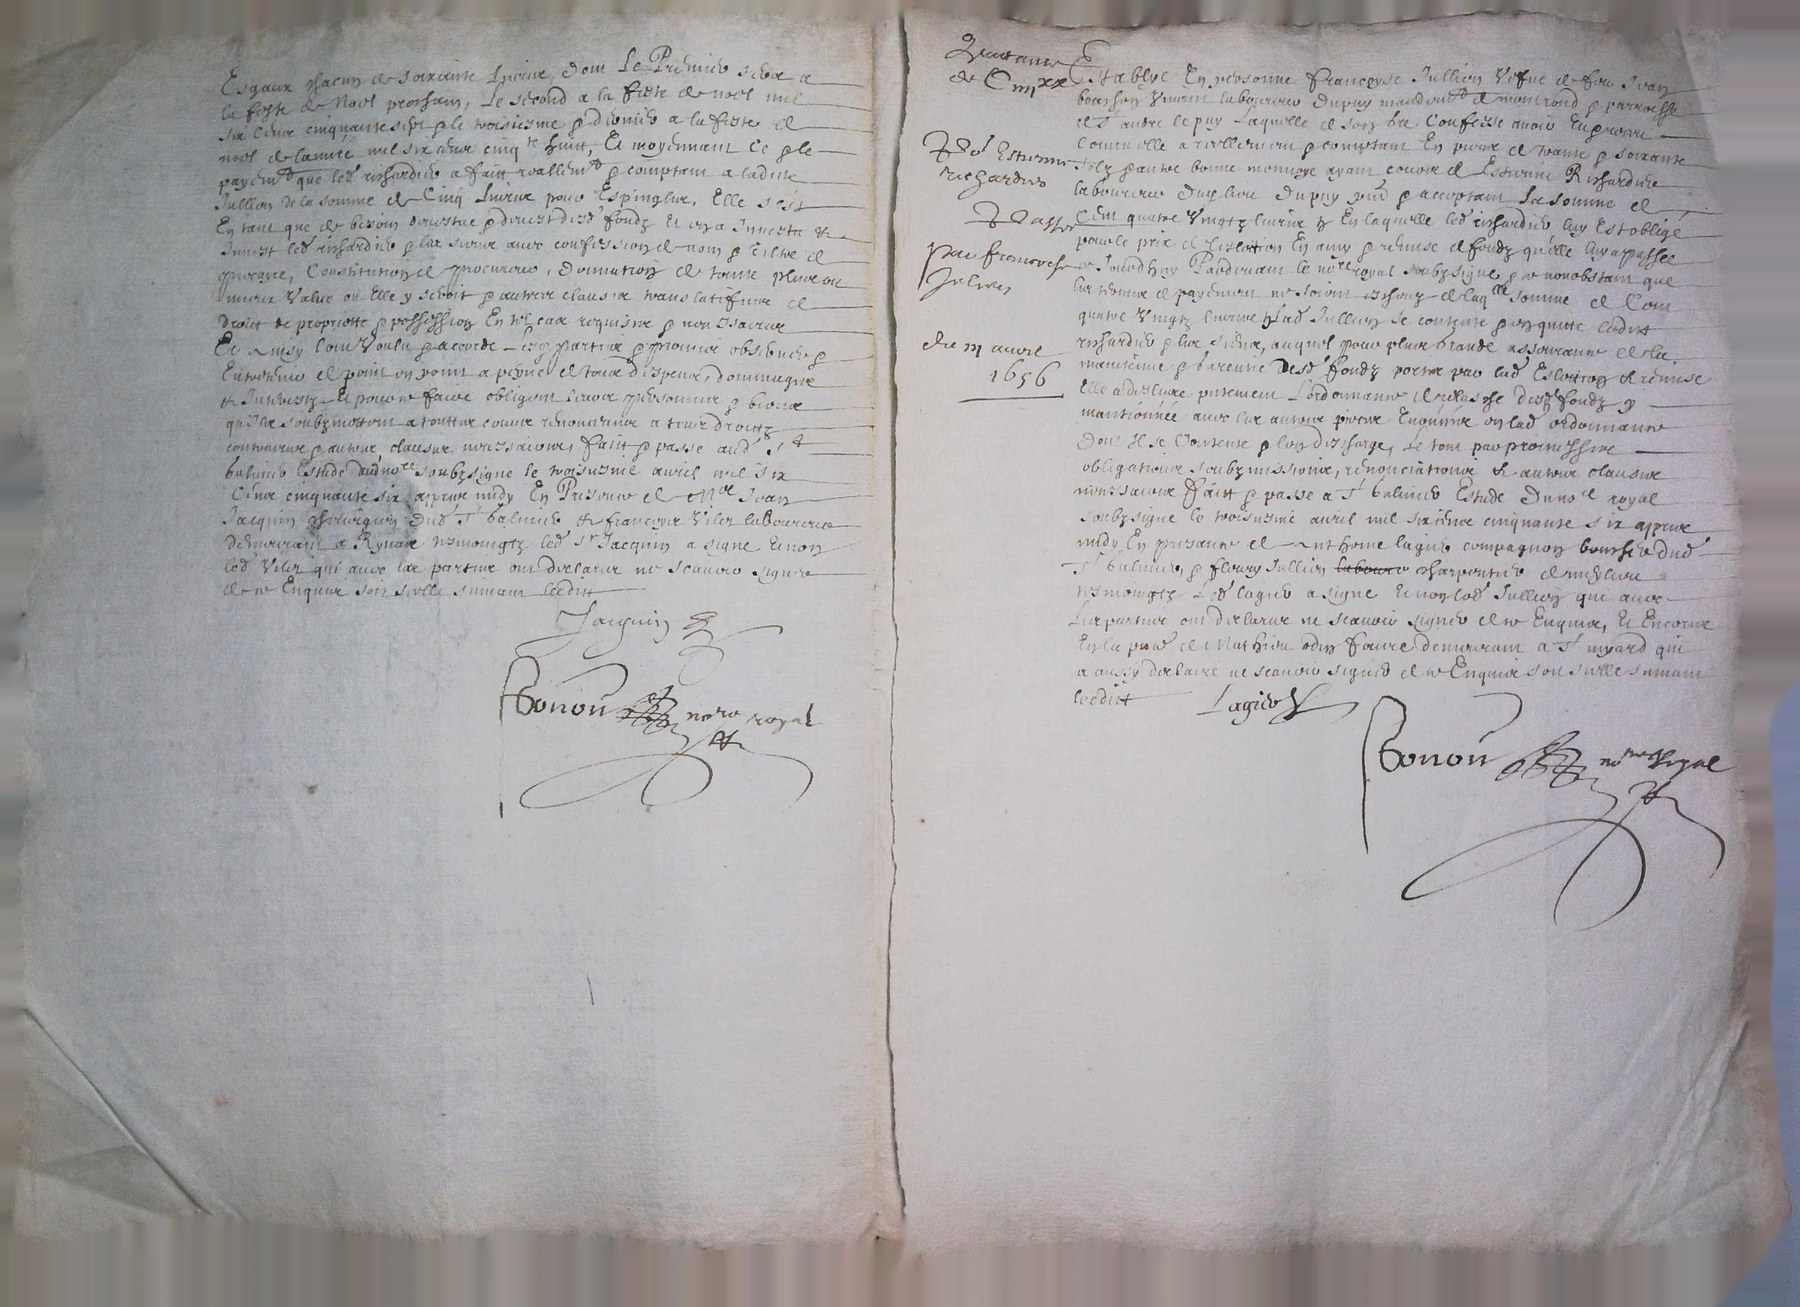 Esgaux chacun de soixante livres, dont le Premier sera a
la feste de Noel prochain, le second a la feste de noel mil
six cens cinquante sept & le troisiesme & dernier a la feste de
noel de lannee mil six cens cinq.te huict, Et moyennant ce & le
payem.t que led. richardier a faict reallem.t & comptant a ladite
Jullien de la somme de Cinq livres pour Espingles, Elle sest
En tant que de besoin devestue & devest desd. fondz Et en a Investu &
Investt led. richardier & les siens avec confession de nom & tiltre de
precaire, Constitution de procureur, donnation de toute plus ou
moins value ou Elle y seroit & autres clauses translatifves de
droict de propriette & possession En tel cas requises & necessaires
Et Ainsy lont voulu & accorde lesd. parties & promis observer &
Entretenir de point en point a peyne de tous despens, dommages
& Interestz Et pour ce faire obligent leurs personnes & biens
quils soubzmettent a touttes cours renonceant a tous droictz
contraires & autres clauses necessaires, faict & passe aud. St
balmier Estude dud no.re soubzsigne le troisiesme avril mil six
Cens cinquante six appres midy En Presence de M.re Jean
Jacquin chirurgien dud. St balmier & francoys Viler laboureur
demeurant a Rynar tesmoingtz led. Sr Jacquin a signe Et non
led. Viler qui avec les parties ont declaire ne scavoir signer
de ce Enquis soit scelle suivant leedict
Jacquin
Bonon no.re royal
Quittance
de C iiij xx £
P.r Estienne
richardier
Passee
par francoyse
Julien
du iij avril
1656
Establye En personne francoyse Jullien vefve de feu Jean
bouchon vivant laboureur du puy mandem.t de montrond & parroisse
de St andre le puy Laquelle de son gre Confesse avoir Eu & receu
comme elle a reallement & comptant En pieces de trante & soixante
solz & autre bonne monnoye ayant cours de Estienne Richardier
laboureur dud. lieu du puy pnt & acceptant La somme de
Cent quatre vingtz livres tz En laquelle led. richardier luy est oblige
pour le prix de l'eslection En amy & remise de fondz quelle luy a passee
ce Jourdhuy Pardevant le no.re royal soubzsigne & ce nonobstant que
les termes de payement ne soient escheuz de laq.lle somme de Cent
quatre vingtz livres tz lad. Jullien se contente & en quitte ledict
richardier & les siens, auquel pour plus grande asseurance de la
maintenue & garentie desd. fondz portes par lad. Eslection & remise
Elle a deslivre purement Lordonnance de relasche desd. fondz y
mantionnee avec les autres pieces Enoncees en lad. ordonnance
dont Il se Contente & len descharge, Le tout par promesses
obligations soubzmissions, renonciations & autres clauses
necessaires faict & passe a St balmier Estude du no.re royal
soubzsigne le troisiesme avril mil six cens cinquante six appres
midy En presence de Anthoine lagier compagnon boucher dud.
St balmier & fleury Jullien charpentier de
tesmoingtz Led. lagier a signe Et non led. Jullien qui avec
Les parties ont declaires ne scavoir signer de ce Enquis, Et Encores
En la pnce de Mathieu odin faure demeurant a St myard qui
a aussy declaire ne scavoir signer de ce Enquis soit scelle suivant
leedict
Lagier
Bonon no.re Royal